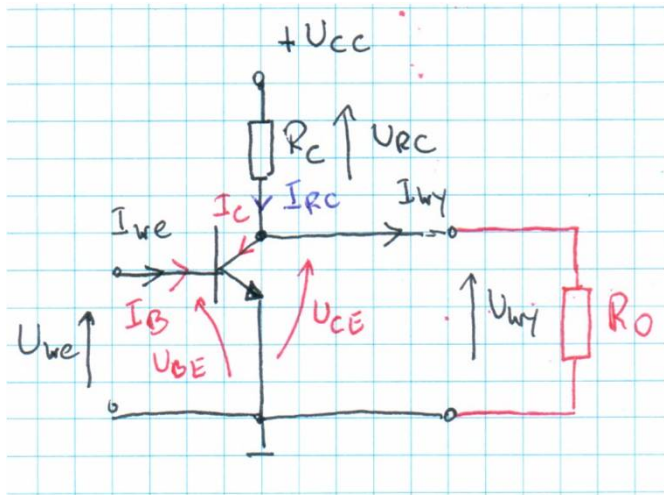 +UCC
RC URC
IC IRC IWY
Iwe
IB UCE UWY RO
Uwe UBE